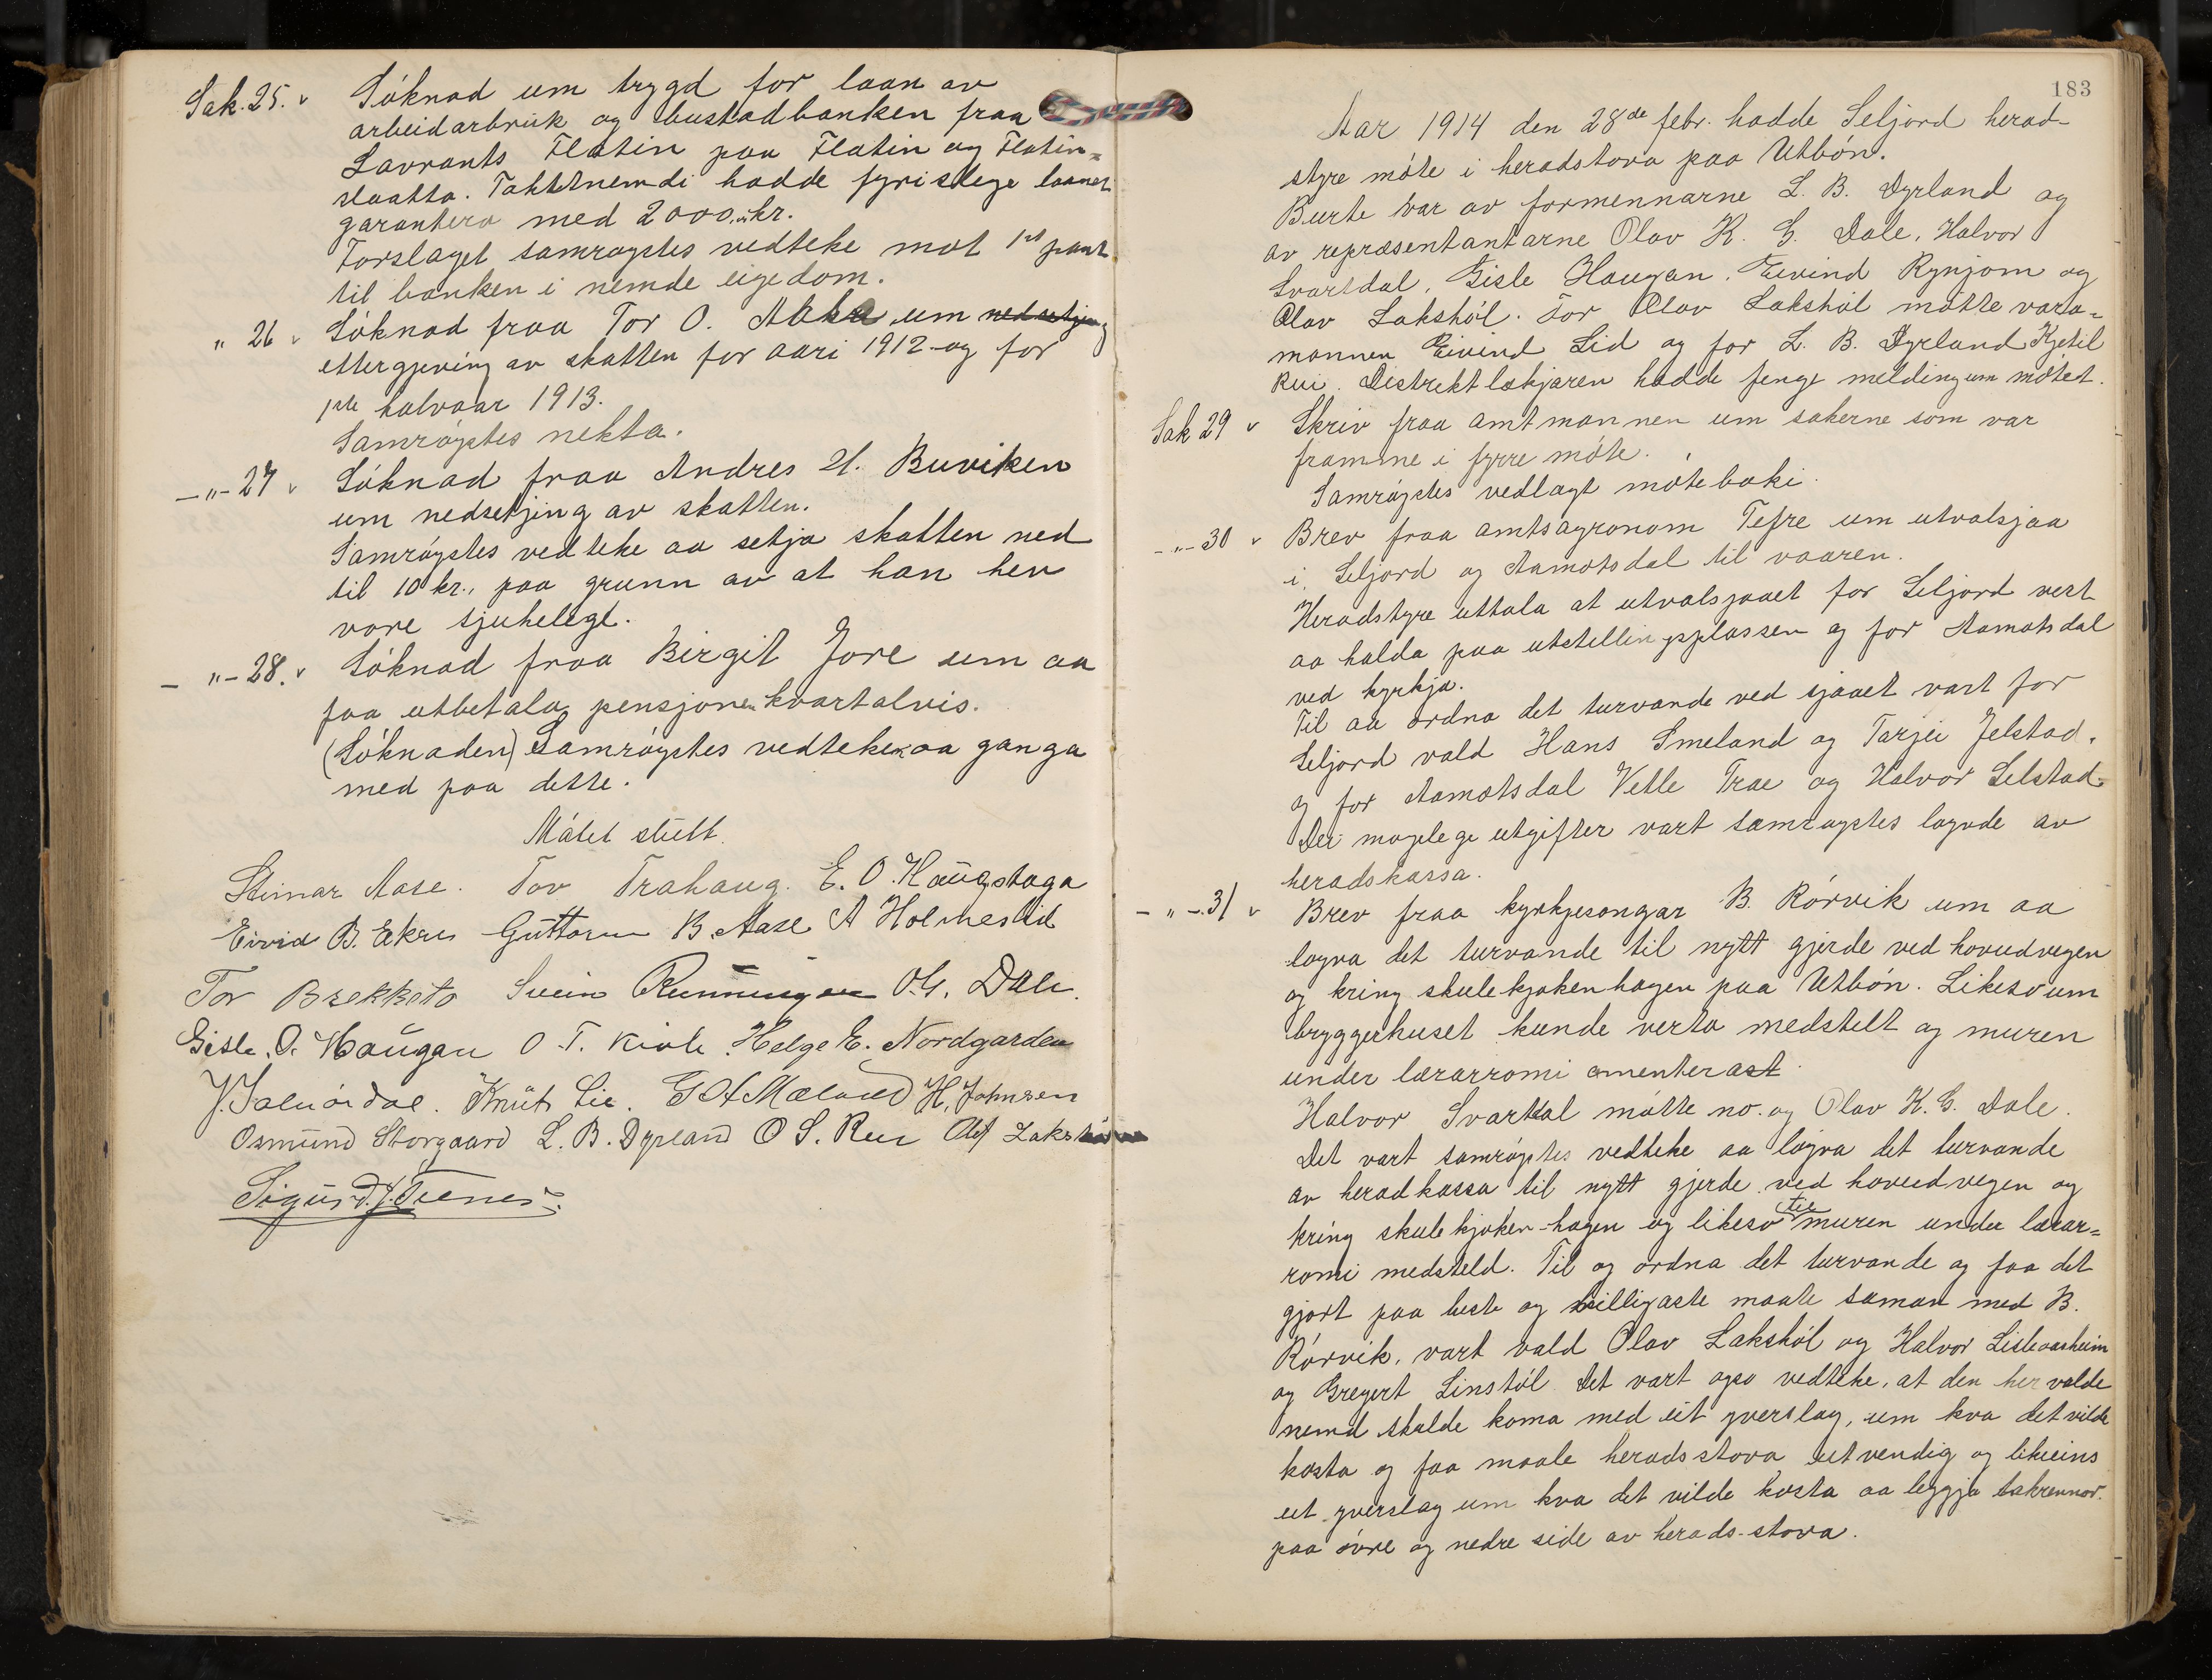 Sak. 25. v Søknad um trygd for laan av
arbeidarbruk og bustadbanken fraa
Lavrants Flatin paa Flatin og Flatin-
slaatta. Takstnemdi hadde fyrislege laanet
garantera med 2000 kr.
Forslaget samrøystes vedteke mot 1st pant
til banken i nemde eigedom.
" 26 v Søknad fraa Tor O. um nedsetjing
ettergjeving av skatten for aari 1912 og for
1ste halvaar 1913.
Samrøystes nekta.
-"- 27 v Søknad fraa Andres H. Buviken
um nedsetjing av skatten.
Samrøystes vedteke aa setja skatten ned
til 10 kr., paa grunn av at han hev
vore sjukelegt.
- "- 28. v Søknad fraa Birgit Jore um aa
faa utbetala pensjonen kvartalvis.
(Søknaden) Samrøystes vedteke aa ganga
med paa dette.
Møtet slutt.
Steinar Aase. Tov Trahaug. E. O. Haugstaga
Eivid B. Ekre Guttorm B. Aase A Holmeslid
Tor Brekketo Svein Runningen O.G. Dale.
Gisle. O. Haugan O. T. Kivle Helge E. Nordgarden
Knut Lie. G A Mæland H. Johnsen
Osmund Storgaard L. B. Dyrland O S. Rui Olaf Lakshøl
Sigurd
183
Aar 1914 den 28de febr. hadde Seljord herad-
styre møte i heradstova paa Utbøn.
Burte var av formennarne L. B. Dyrland og
av repræsentantarne Olav K. G. Dale, Halvor
Svartdal, Gisle Haugan, Eivind Rynjom og
Olav Lakshøl. For Olav Lakshøl møtte vara-
mannen Eivind Lid og for L. B. Dyrland Kjetil
Rui. Distriktlækjaren hadde fenge melding um møtet.
Sak 29 v Skriv fraa amtmannen um sakerne som var
framme i fyrre møte.
Samrøystes vedlagt møteboki.
-"- 30 v Brev fraa amtsagronom Tefre um utvalsjaa
i Seljord og Aamotsdal til vaaren.
Heradstyre uttala at utvalsjaaet for Seljord vert
aa halda paa utstellingsplassen og for Aamotsdal
ved kyrkja.
Til aa ordna det turvande ved sjaaet vart for
Seljord vald Hans Smeland og Tarjei Jelstad,
og for Aamotsdal Vetle Trae og Halvor Selstad.
Dei moglege utgifter vart samrøystes løyvde av
heradskassa.
- " - 31 v Brev fraa kyrkjesongar B. Rørvik um aa
løyva det turvande til nytt gjerde ved hovudvegen
og kring skulekjøkenhagen paa Utbøn. Likeso um
bryggerhuset kunde verta medstelt og muren
under lærarromi cmenterast.
Halvor Svartdal møtte no og Olav K. G. Dale.
Det vart samrøystes vedteke aa løyva det turvande
av heradkassa til nytt gjerde ved hovudvegen og
kring skulekjøken-hagen og likeso til muren under lærar-
romi medsteld. Til og ordna det turvande og faa det
gjort paa beste og billigaste maate saman med B.
Rørvik, vart vald Olav Lakshøl og Halvor Lisleaasheim
og Gregert Linstøl. Det vart ogso vedteke, at den her valde
nemd skulde koma med eit yverslag, um kva det vilde
kosta og faa maale heradsstova utvendig og likeeins
eit yverslag um kva det vilde kosta aa leggja takrennor
paa øvre og nedre side av herads-stova.